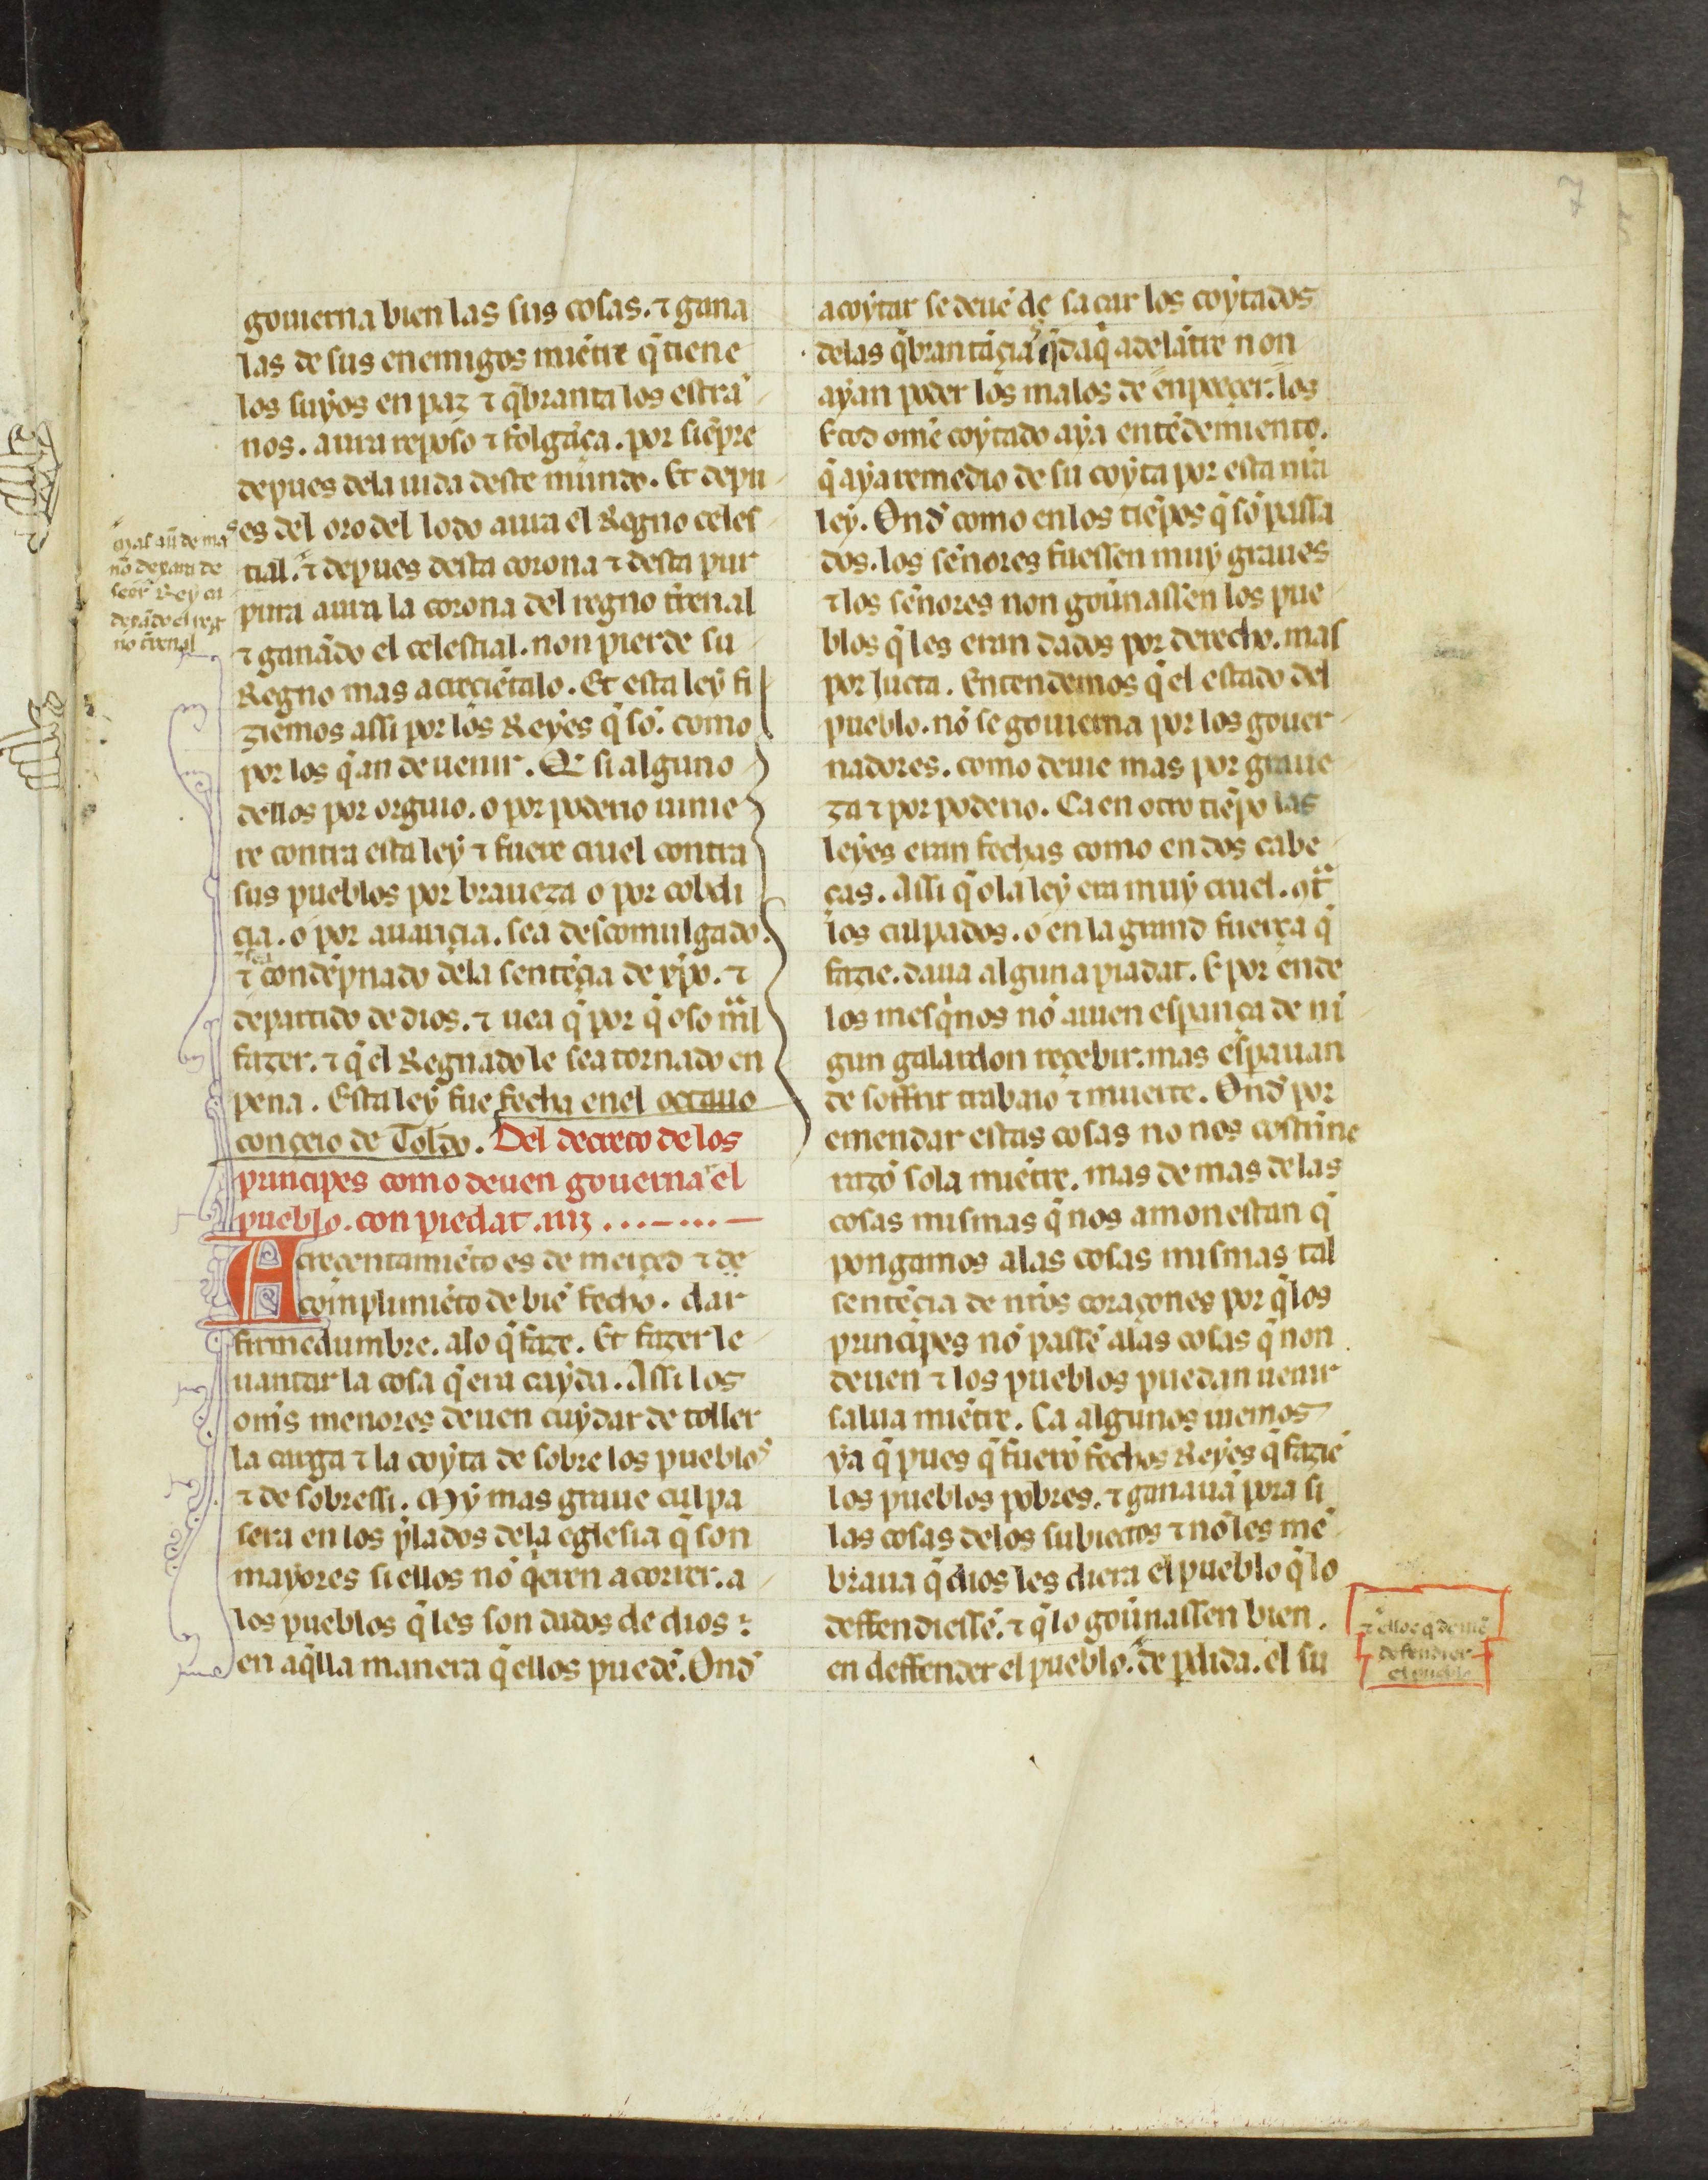 7
gouierna bien las sus cosas. ⁊ gana
las de sus enemigos miẽtre q̃ tiene
los suyos en paz ⁊ q̃branta los estra
nos. aura reposo ⁊ folgãça. por siẽpre
depues dela uida deste mundo. Et depu
es del oro del lodo aura el Regno celes
tial. ⁊ depues desta corona ⁊ desta pur
pura aura la corona del regno t̃renal
⁊ ganãdo el celestial. non pierde su
Regno mas acreçiẽtalo. Et esta ley fi
ziemos assi por los Reyes q̃ sõ. como
por los q̃ an de uenir. Et si alguno
dellos por orguio. o por poderio uinie
re contra esta ley ⁊ fuere cruel contra
sus pueblos por braueza o por cobdi
çia. o por auariçia. sea descomulgado.
⁊ sea condẽpnado dela sentẽçia de xp̃o. ⁊
departido de dios. ⁊ uea q̃ por q̃ oso mal
fazer. ⁊ q̃ el Regnado le sea tornado en
pena. Esta ley fue fecha enel octauo
conçeio de Toldo. Del decreto de los
principes como deuen gouernar el
pueblo. con piedat. iiij
Acreçentamiẽto es de merçed ⁊ de
complimiẽto de biẽ fecho. dar
firmedumbre. alo q̃ faze. Et fazer le
uantar la cosa q̃ era cayda. Assi los
om̃s menores deuen cuydar de toller
la carga ⁊ la coyta de sobre los pueblos
⁊ de sobressi. My mas graue culpa
sera en los p̃lados dela eglesia q̃ son
mayores si ellos nõ q̃ieren acorrer. a
los pueblos q̃ les son dados de dios
en aq̃lla manera q̃ ellos puedẽ. Ond̃
mas aũ de ma
nõ dexara de
seer Rey en
dexãdo el reg
no t̃renal
acoytar se deuẽ de sacar los coytados
delas q̃brantãçias q̃ daq̃ adelãtre non
ayan poder los malos de enpeeçer. los
E tod omẽ coytado aya entẽdemiento.
q̃ aya remedio de su coyta por esta nr̃a
ley. Ond̃ como en los tiẽpos q̃ sõ passa
dos. los señores fuessen muy graues
⁊ los señores non gou̾nassen los pue
blos q̃ les eran dados por derecho. mas
por lucta. Entendemos q̃ el estado del
pueblo. nõ se gouierna por los gouer
nadores. como deue mas por graue
za ⁊ por poderio. Ca en otro tiẽpo las
leyes eran fechas como en dos cabe
ças. Assi q̃ o la ley era muy cruel. 9tra
los culpados. o en la grand fuerça q̃
fazie. daua alguna piadat. E por ende
los mesq̃nos nõ auien esp̃ança de nĩ
gun galardon reçebir. mas esp̃auan
de soffrir trabaio ⁊ muerte. Ond̃ por
emendar estas cosas no nos costrine
razõ sola miẽtre. mas de mas de las
cosas mismas q̃ nos amonestan q̃
pongamos a las cosas mismas tal
sentẽçia de nr̃os coraçones por q̃ los
principes nõ passẽ alas cosas q̃ non
deuen ⁊ los pueblos puedan uenir
salua miẽtre. Ca algunos uiemos
ya q̃ pues q̃ fuerõ fechos Reyes q̃ faziẽ
los pueblos pobres. ⁊ ganauã pora si
las cosas delos subiectos ⁊ nõ les mẽ
braua q̃ dios les diera el pueblo q̃ lo
deffendiessẽ. ⁊ q̃ lo gou̾nassen bien.
en deffender el pueblo. de p̃dida. el su
⁊ ellos q̃ deuiẽ
defender
el pueblo